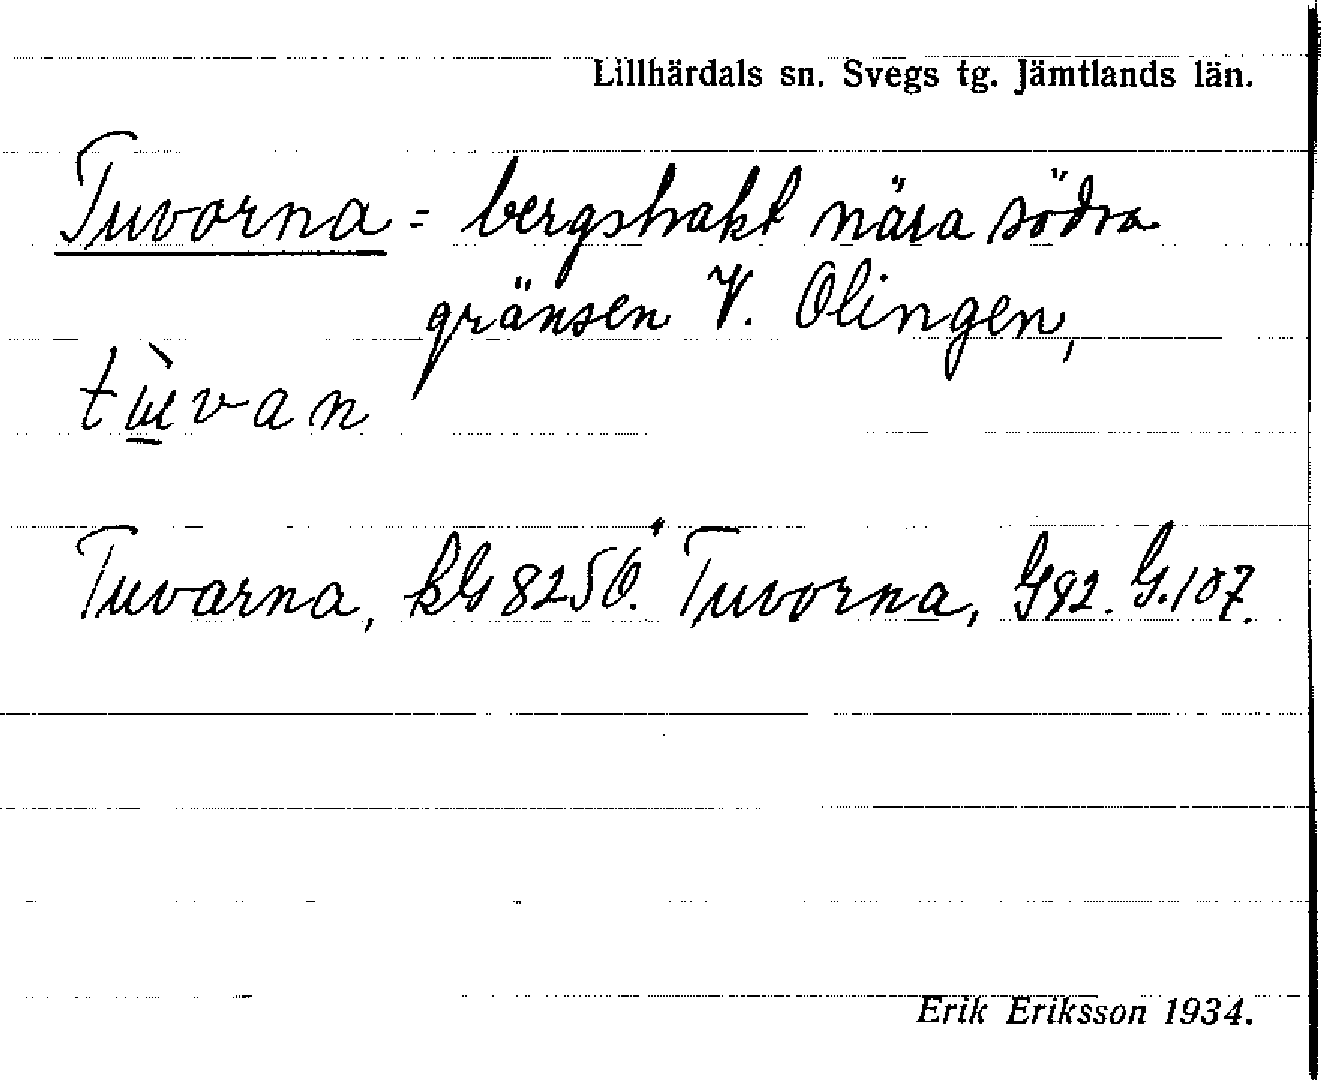 Lillhärdals sn. Svegs tg. Jämtlands län.
Tuvorna = bergstrakt nära södra
gränsen V. Olingen,
tùvan
Tuvarna, kG 8250. Tuvorna, G92. G.107.
Erik Eriksson 1934.